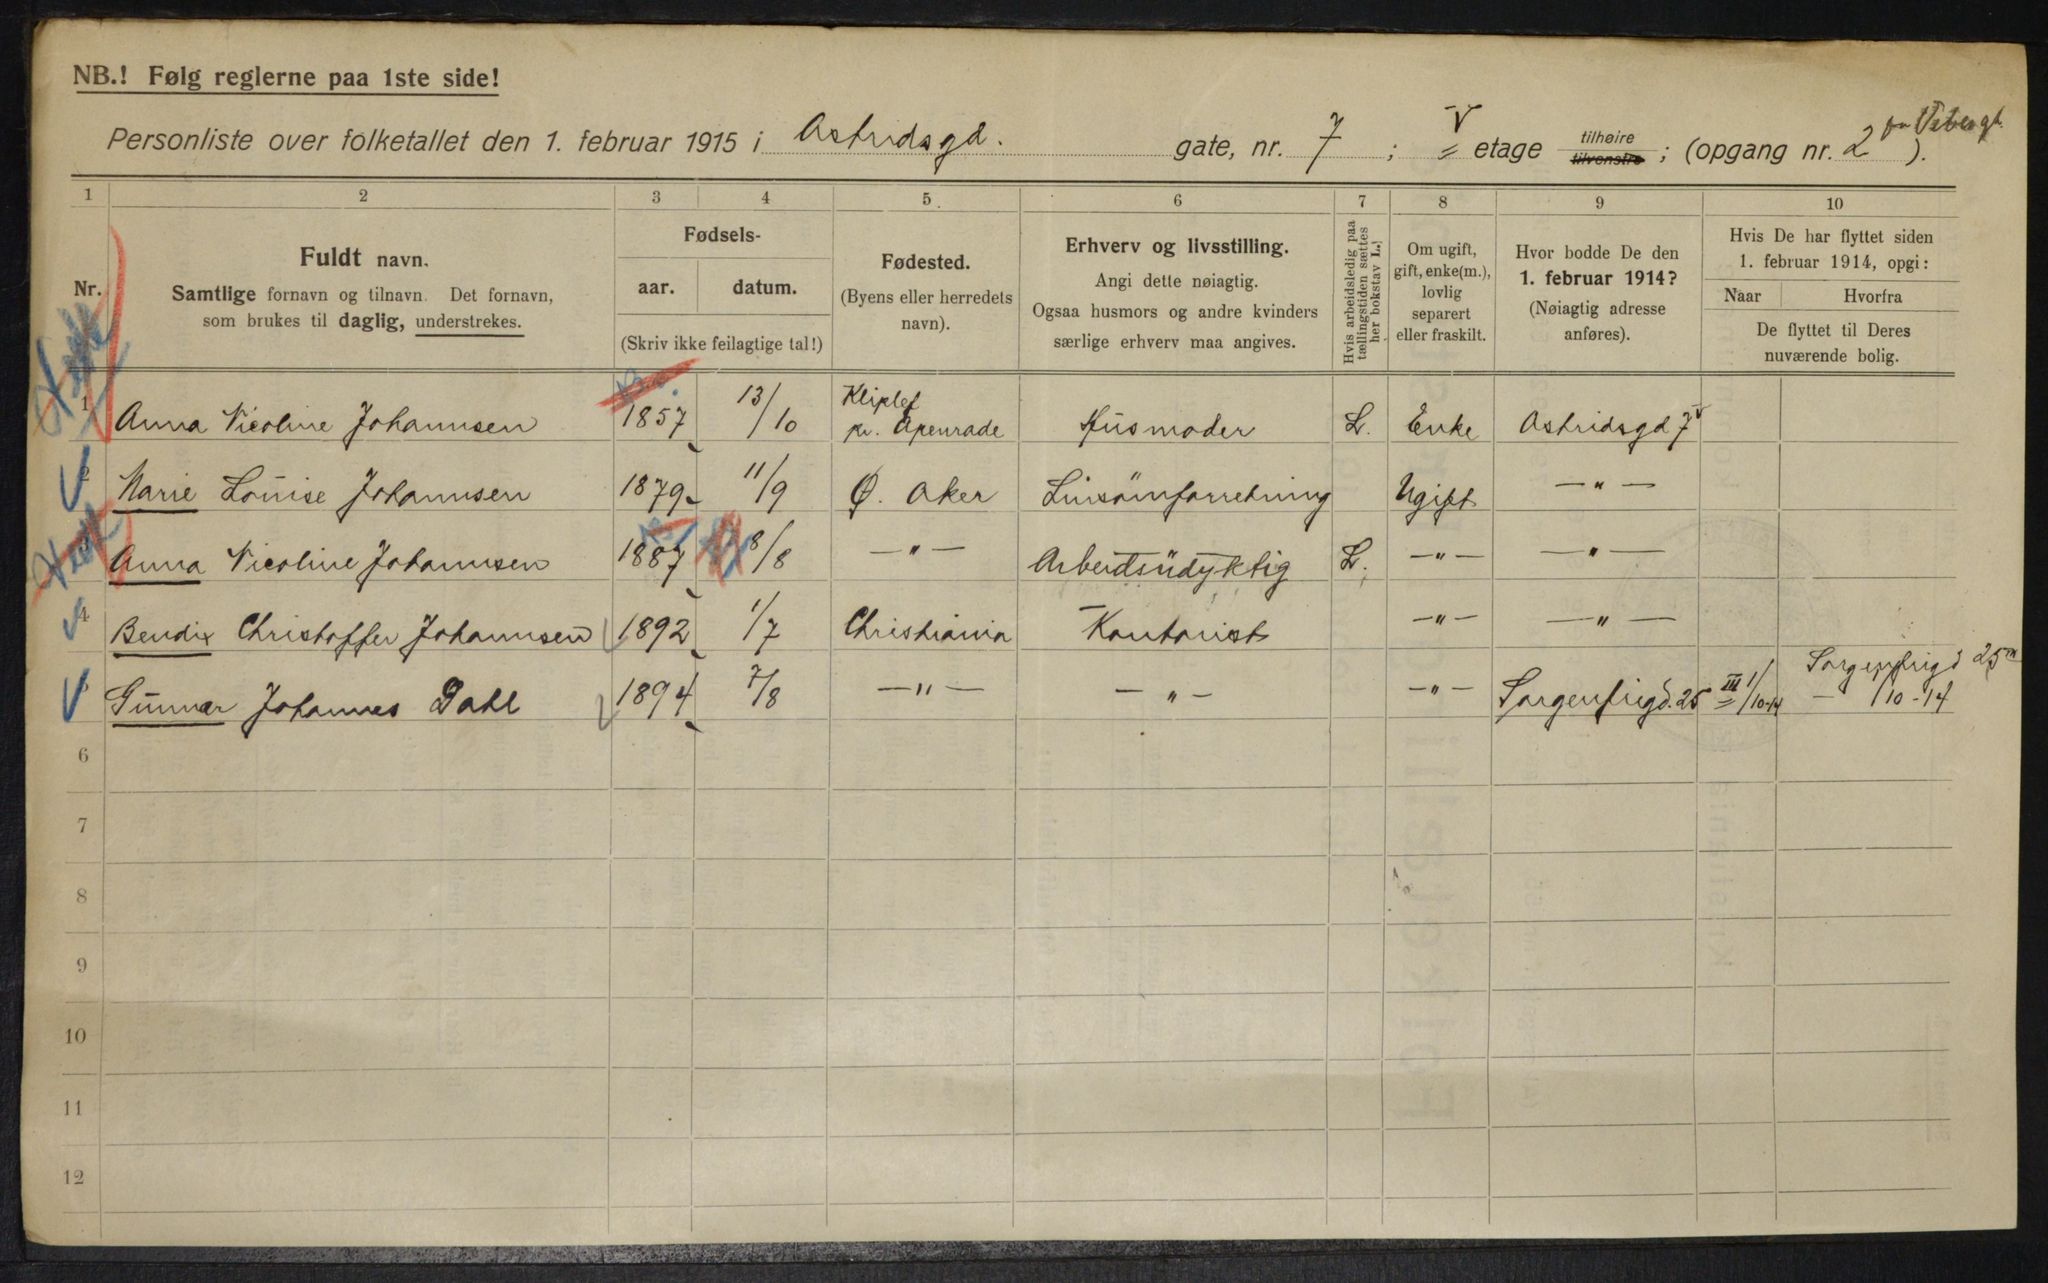 NB.! Følg reglerne paa 1ste side!
Personliste over folketallet den 1. februar 1915 i Astridsgd. gate, nr. 7 ; V etage tilhøire tilvenstre ; (opgang nr. 2 ).
1 2 3 4 5 6 7 8 9 10
Nr.
Fuldt navn.
Samtlige fornavn og tilnavn. Det fornavn,
som brukes til daglig, understrekes.
Fødsels-
aar. datum.
(Skriv ikke feilagtige tal!)
Fødested.
(Byens eller herredets
navn).
Erhverv og livsstilling.
Angi dette nøiagtig.
Ogsaa husmors og andre kvinders
særlige erhverv maa angives.
Hvis arbeidsledig paa
tællingstiden sættes
her bokstav L.)
Om ugift,
gift, enke(m.),
lovlig
separert
eller fraskilt.
Hvor bodde De den
1. februar 1914?
(Nøiagtig adresse
anføres).
Hvis De har flyttet siden
1. februar 1914, opgi:
Naar Hvorfra
De flyttet til Deres
nuværende bolig.
1 Anna Nicoline Johannsen 1857 13/10 Kliplef pr. Apenrade Husmoder L. Enke Astridsgd 7 V
2 Marie Louise Johannsen 1879 11/9 Ø. Aker Linsömforretning Ugift — " —
3 Anna Nicoline Johannsen 1887 8/8 — " — Arbeidsüdyktig L. — " — — " —
4 Bendix Christoffer Johannsen 1892 1/7 Christiania Kontorist — " — — " —
5 Gunnar Johannes Dahl 1894 7/8 — " — — " — — " — Sorgenfrigd. 25 III 1/10-14 Sorgenfrigd 25 III
— 1/10-14
6
7
8
9
10
11
12